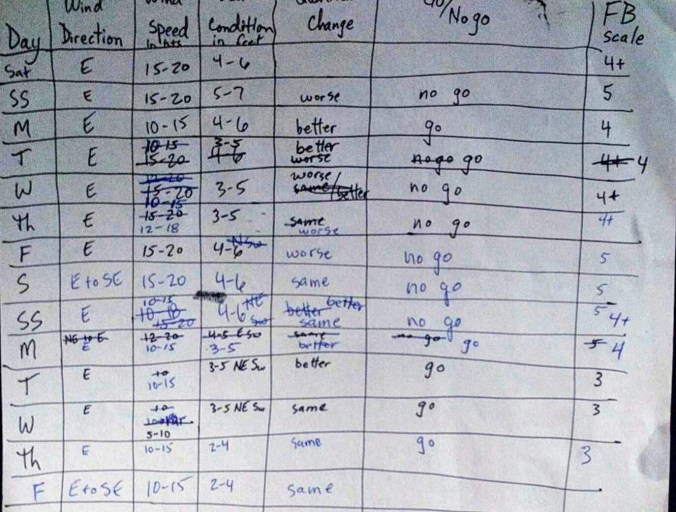 Wind Go/No go FB
Day Direction Speed Condition Change scale
in feet
Sat E 15-20 4-6 4+
SS E 15-20 5-7 worse no go 5
M E 10-15 4-6 better go 4
10-15 3-5 better
T E 15-20 4-6 worse no go go 4+ 4
worse/
W E 15-20 3-5 same/better no go 4+
10-15
Th E 15-20 3-5 same no go 4+
12-18 worse
F E 15-20 4-6 NSW worse no go 5
S E to SE 15-20 4-6 same no go 5
10-15 NE better
SS E 15-20 4-6 SW better same no go 5 4+
M NE to E 12-20 4-5 E SW same no go go 5 4
E 10-15 3-5 better
T E 10 3-5 NE SW better go 3
10-15
W E 10 3-5 NE SW same go 3
5-10
Th E 10-15 2-4 same go 3
F E to SE 10-15 2-4 same